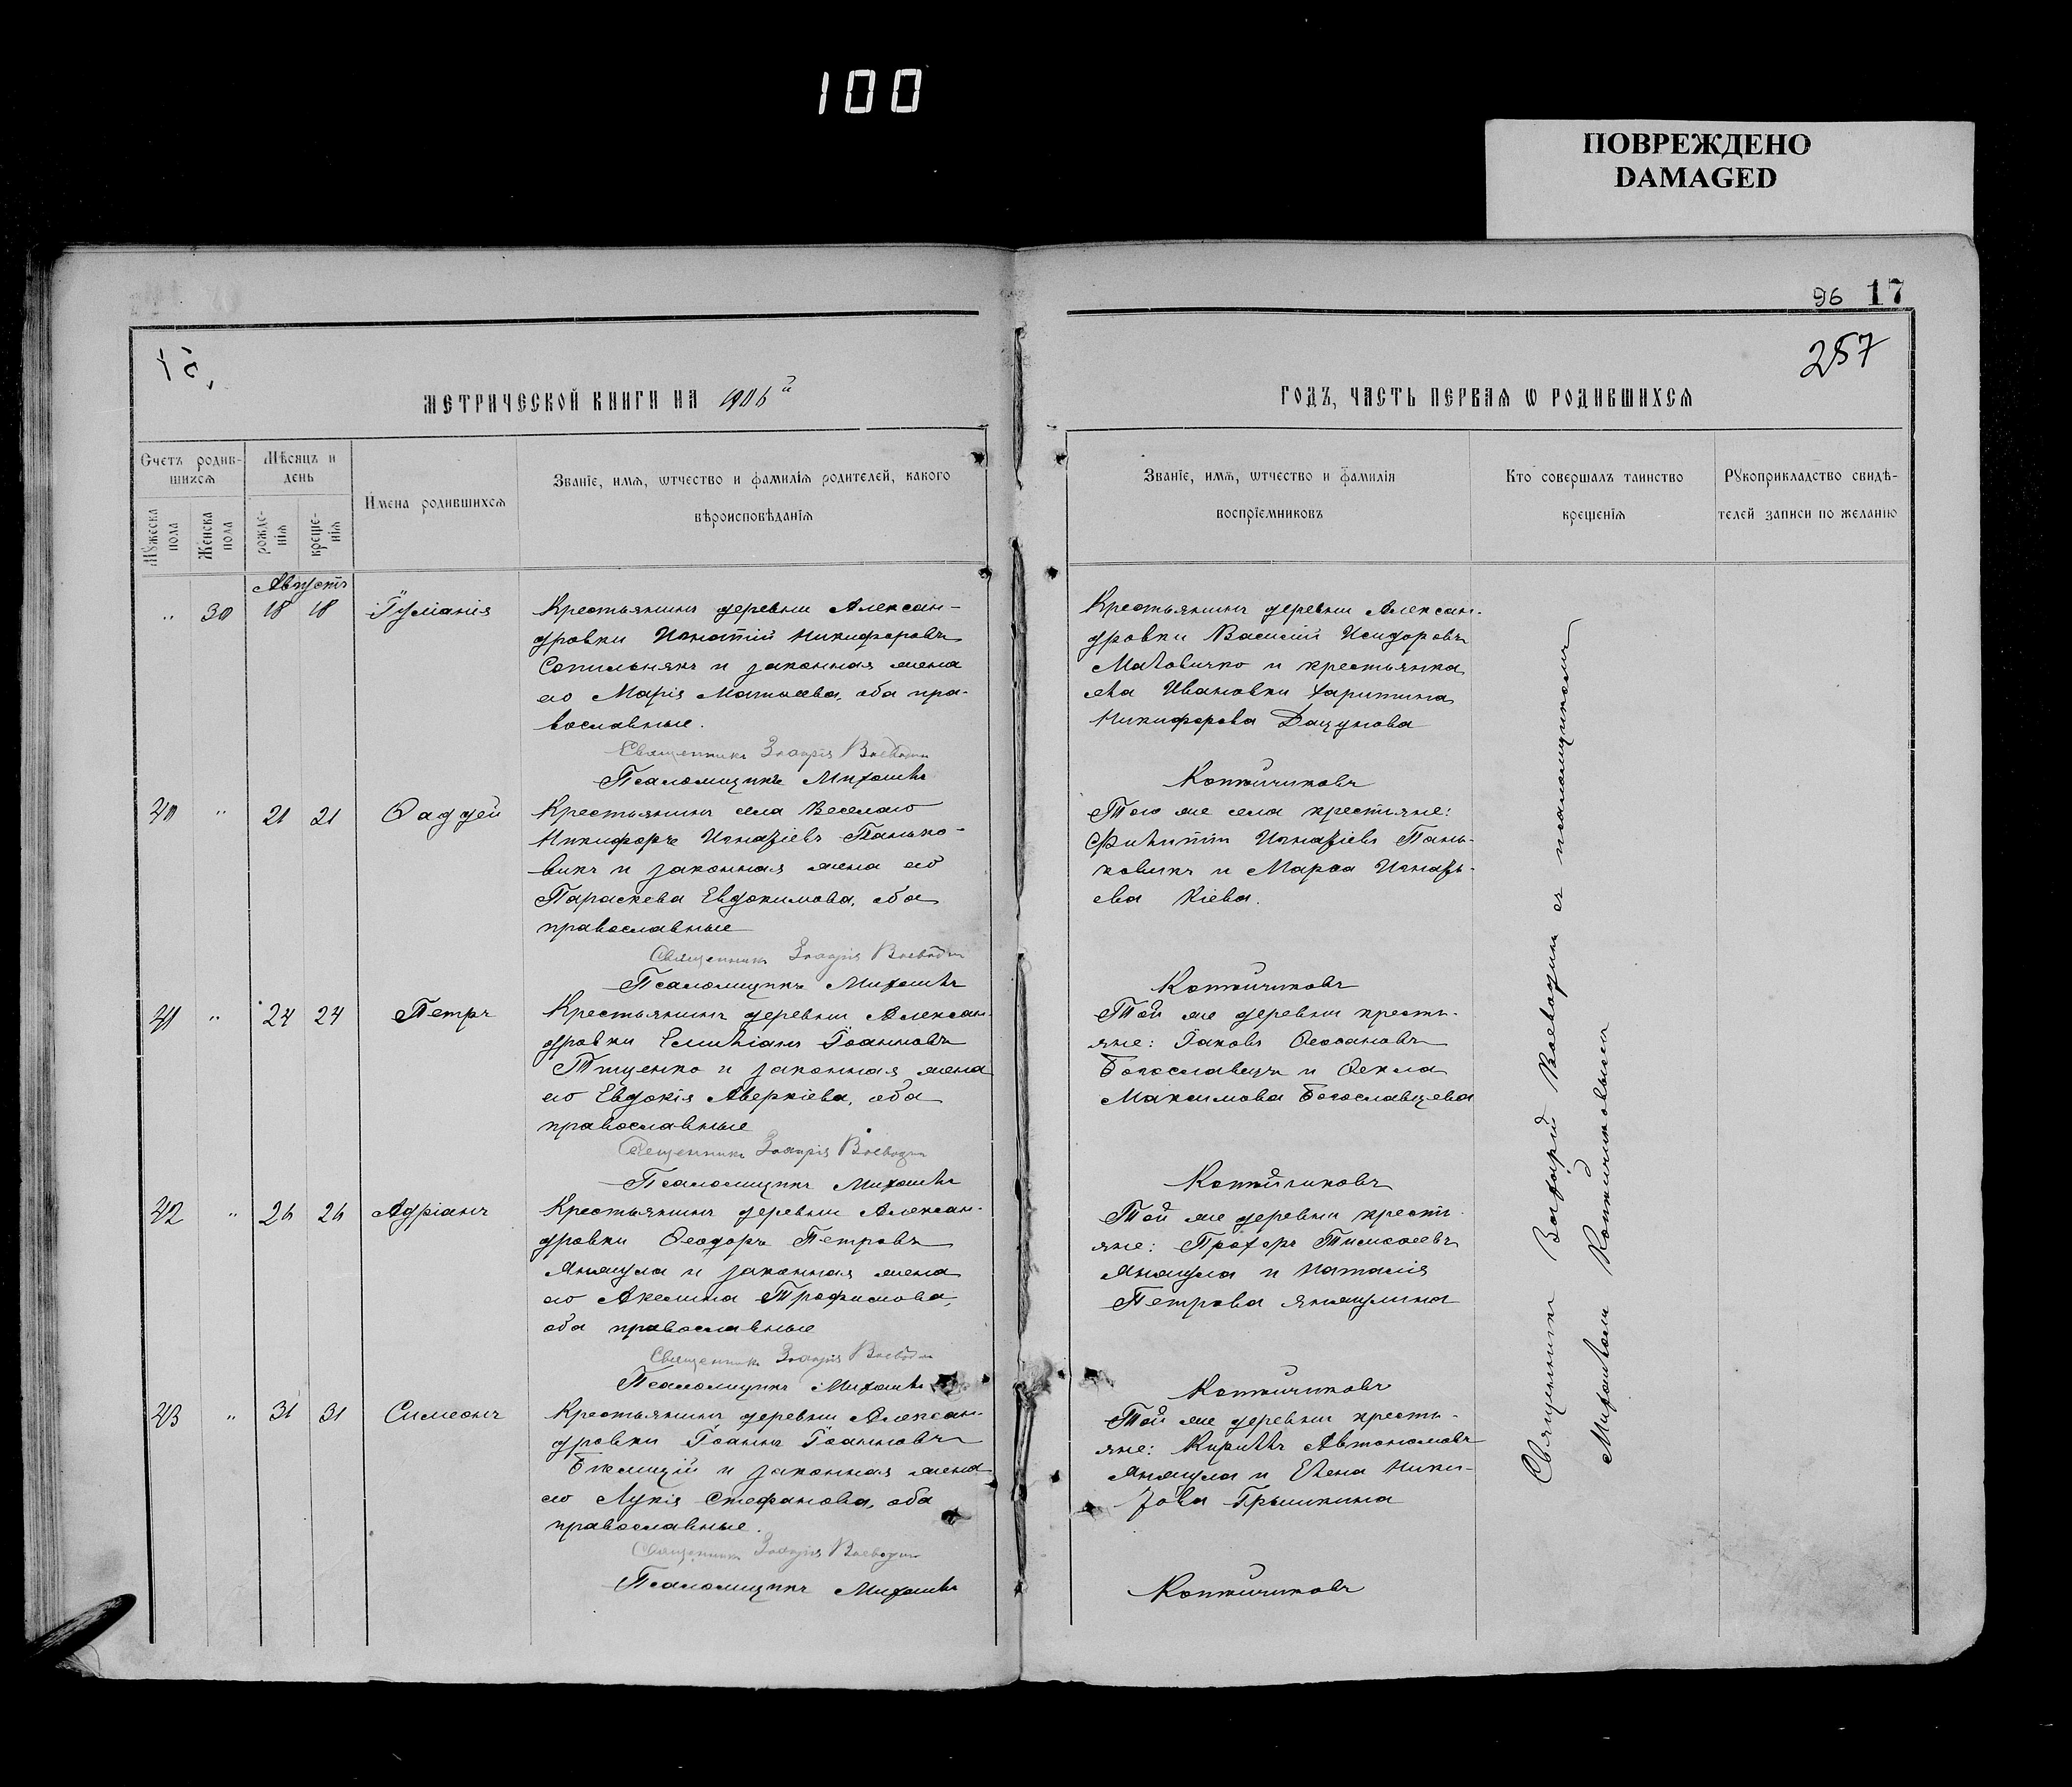 100
ПОВРЕЖДЕНО
DAMAGED
96 17
257
МЕТРИЧЕСКОЙ КНИГИ НА 1906й
ГОДЪ, ЧАСТЬ ПЕРВАЯ Ѡ РОДИВШИХСЯ
Счетъ родив-
шихся
Мужеска
пола
Женска
пола
Мѣсяцъ и
день
рожде-
нія
креще-
нія
Имена родившихся
Званіе, имя, ѡтчество и фамилія родителей, какого
вѣроисповѣданія
Званіе, имя, ѡтчество и фамилія
воспріемниковъ
Кто совершалъ таинство
крещенія
Рукоприкладство свидѣ-
телей записи по желанію
Августъ
" 30 18 18 Іуліанія
Крестьянинъ деревни Алексан-
дровки Игнатій Никифоровъ
Сопильнякъ и законная жена
его Марія Матѳеева, оба пра-
вославные.
Священникъ Захарія Воеводинъ
Псаломщикъ Михаилъ
Крестьянинъ деревни Алексан-
дровки Василій Исидоровъ
и крестьянка
села Ивановки Харитина
Никифорова Дацунова
Коптйчиковъ
40 " 21 21 Ѳаддей
Крестьянинъ села Веселаго
Никифоръ Игнатіевъ Панько-
викъ и законная жена его
Параскева Евдокимова, оба
православные
Священникъ Захарія Воеводинъ
Псаломщикъ Михаилъ
Того же села крестьяне:
Филиппъ Игнатіевъ Пань-
ковикъ и Марѳа Игнать-
ева Кіева.
Коптйчиковъ
41 " 24 24 Петръ
Крестьянинъ деревни Алексан-
дровки Емиліанъ Іоанновъ
Тищенко и законная жена
его Евдокія Аверкіева, оба
православные
Священникъ Захарія Воеводинъ
Псаломщикъ Михаилъ
Той же деревни кресть-
яне: Іаковъ Ѳеофановъ
Богославецъ и Ѳекла
Максимова Богославцева
Коптйчиковъ
42 " 26 26 Адріанъ
Крестьянинъ деревни Алексан-
дровки Ѳеодоръ Петровъ
Янжула и законная жена
его Акелина Трофимова,
оба православные
Священникъ Захарія Воеводинъ
Псаломщикъ Михаилъ
Той же деревни кресть-
яне: Прохоръ Тимоѳеевъ
Янжула и Наталія
Петрова Янжулина
Коптйчиковъ
43 " 31 31 Симеонъ
Крестьянинъ деревни Алексан-
дровки Іоаннъ Іоанновъ
и законная жена
его Лукія Стефанова, оба
православные.
Священникъ Захарія Воеводинъ
Псаломщикъ Михаилъ
Той же деревни кресть-
яне: Кириллъ Автономовъ
Янжула и Елена Ники-
това Гришкина
Коптйчиковъ
Священникъ Захарій Воеводинъ съ псаломщикомъ
Михаиломъ Коптйчиковымъ